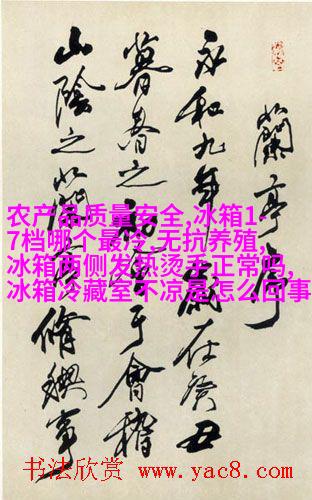 蘭亭序
永和九年歲在癸丑
暮春之初會于會稽
山陰之蘭亭脩禊事
农产品质量安全,冰箱1-
7档哪个最冷,无抗养殖,
冰箱两侧发热烫手正常吗,
冰箱冷藏室不凉是怎么回事
书法欣赏 www.yac8.com